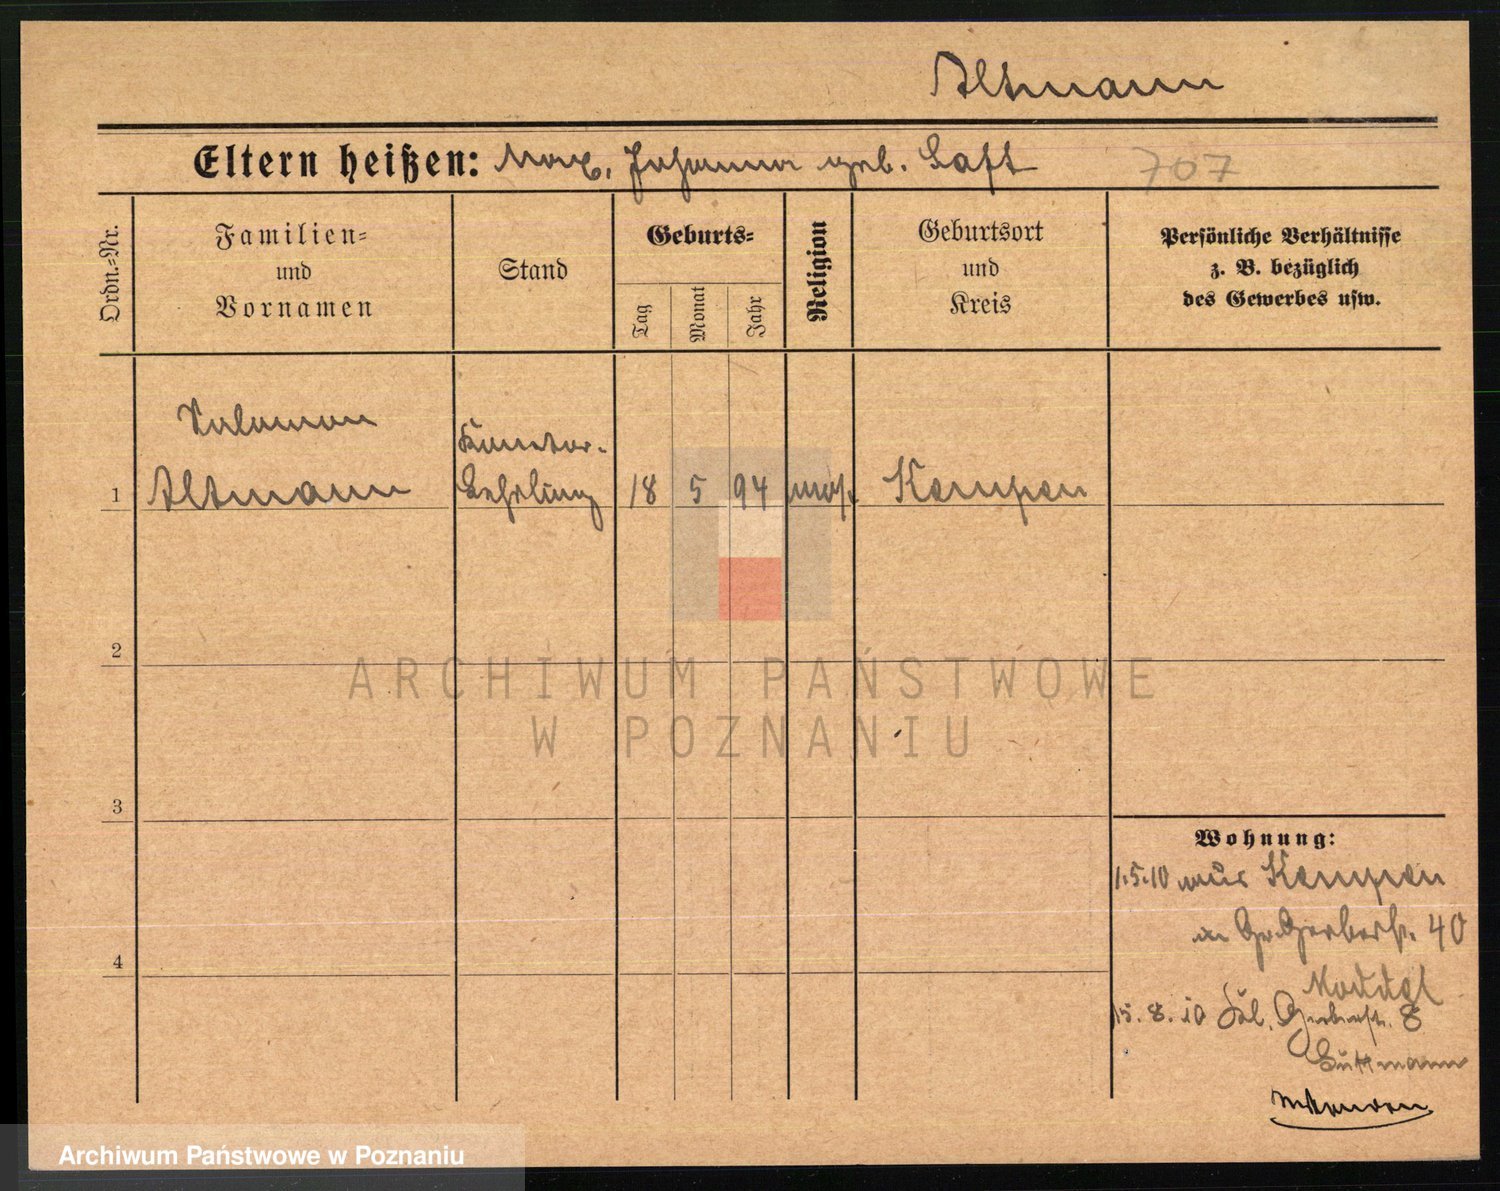 Altmann
Eltern heißen: Max, Johanna geb. Saft 707
Ordn.-Nr.
Familien-
und
Vornamen
Stand
Geburts-
Tag
Monat
Jahr
Religion
Geburtsort
und
Kreis
Persönliche Verhältnisse
z. B. bezüglich
des Gewerbes usw.
Salomon
Altmann
Kontor-
Lehrling
1 18 5 94 mos. Kempen
2
3
4
Wohnung:
1.5.10 aus Kempen
Gr. Gerberst. 40
15. 8. 10 Gerberst. 8
Guttmann
ARCHIWUM PAŃSTWOWE
W POZNANIU
Archiwum Państwowe w Poznaniu